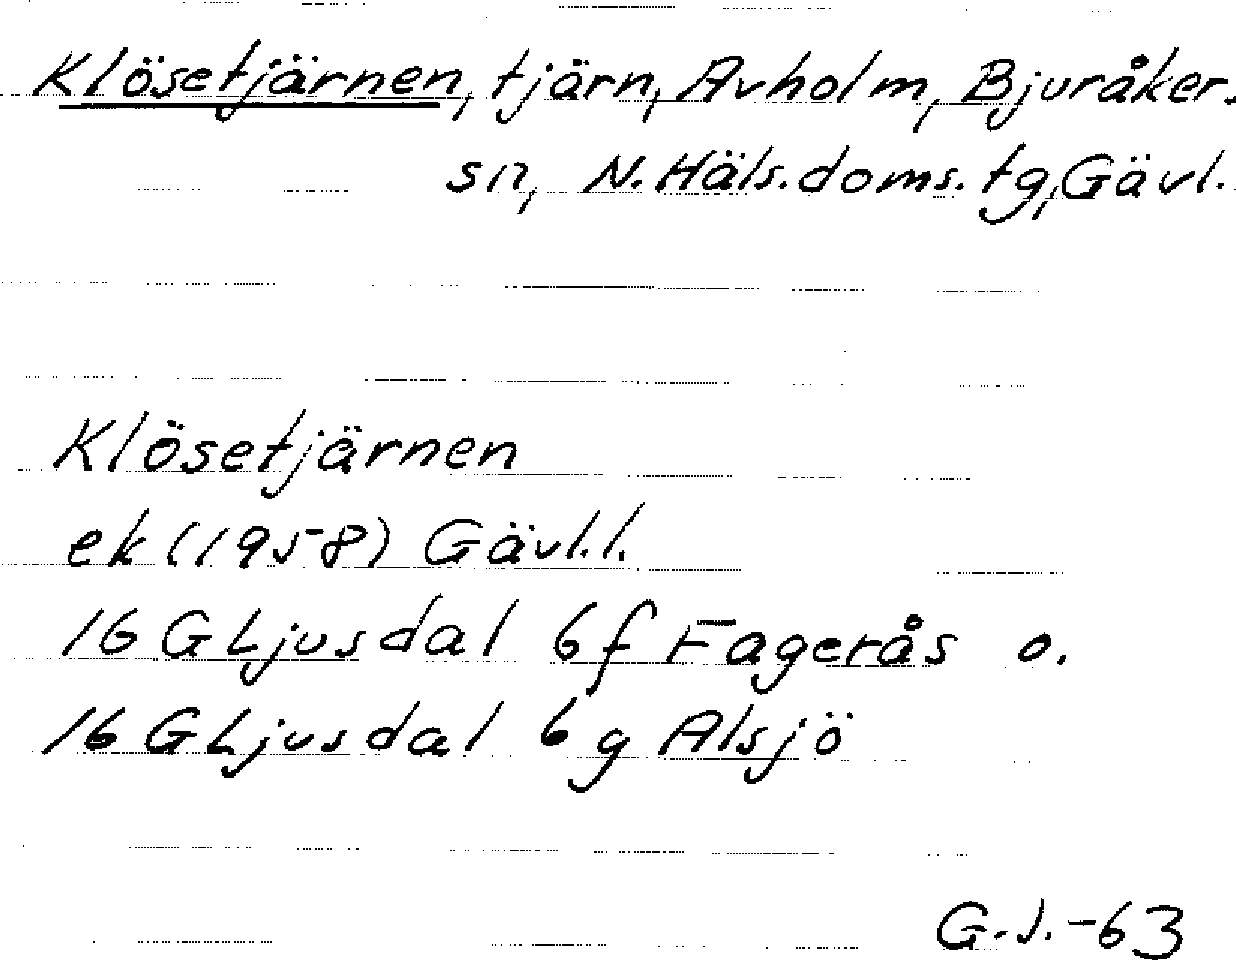 Klösetjärnen, tjärn, Avholm, Bjuråker.
sn, N. Häls. doms. tg, Gävl.
Klösetjärnen
ek (1958) Gävl.l.
16 G Ljusdal 6f Fagerås o.
16 G Ljusdal 6 g Alsjö
G.J.-63